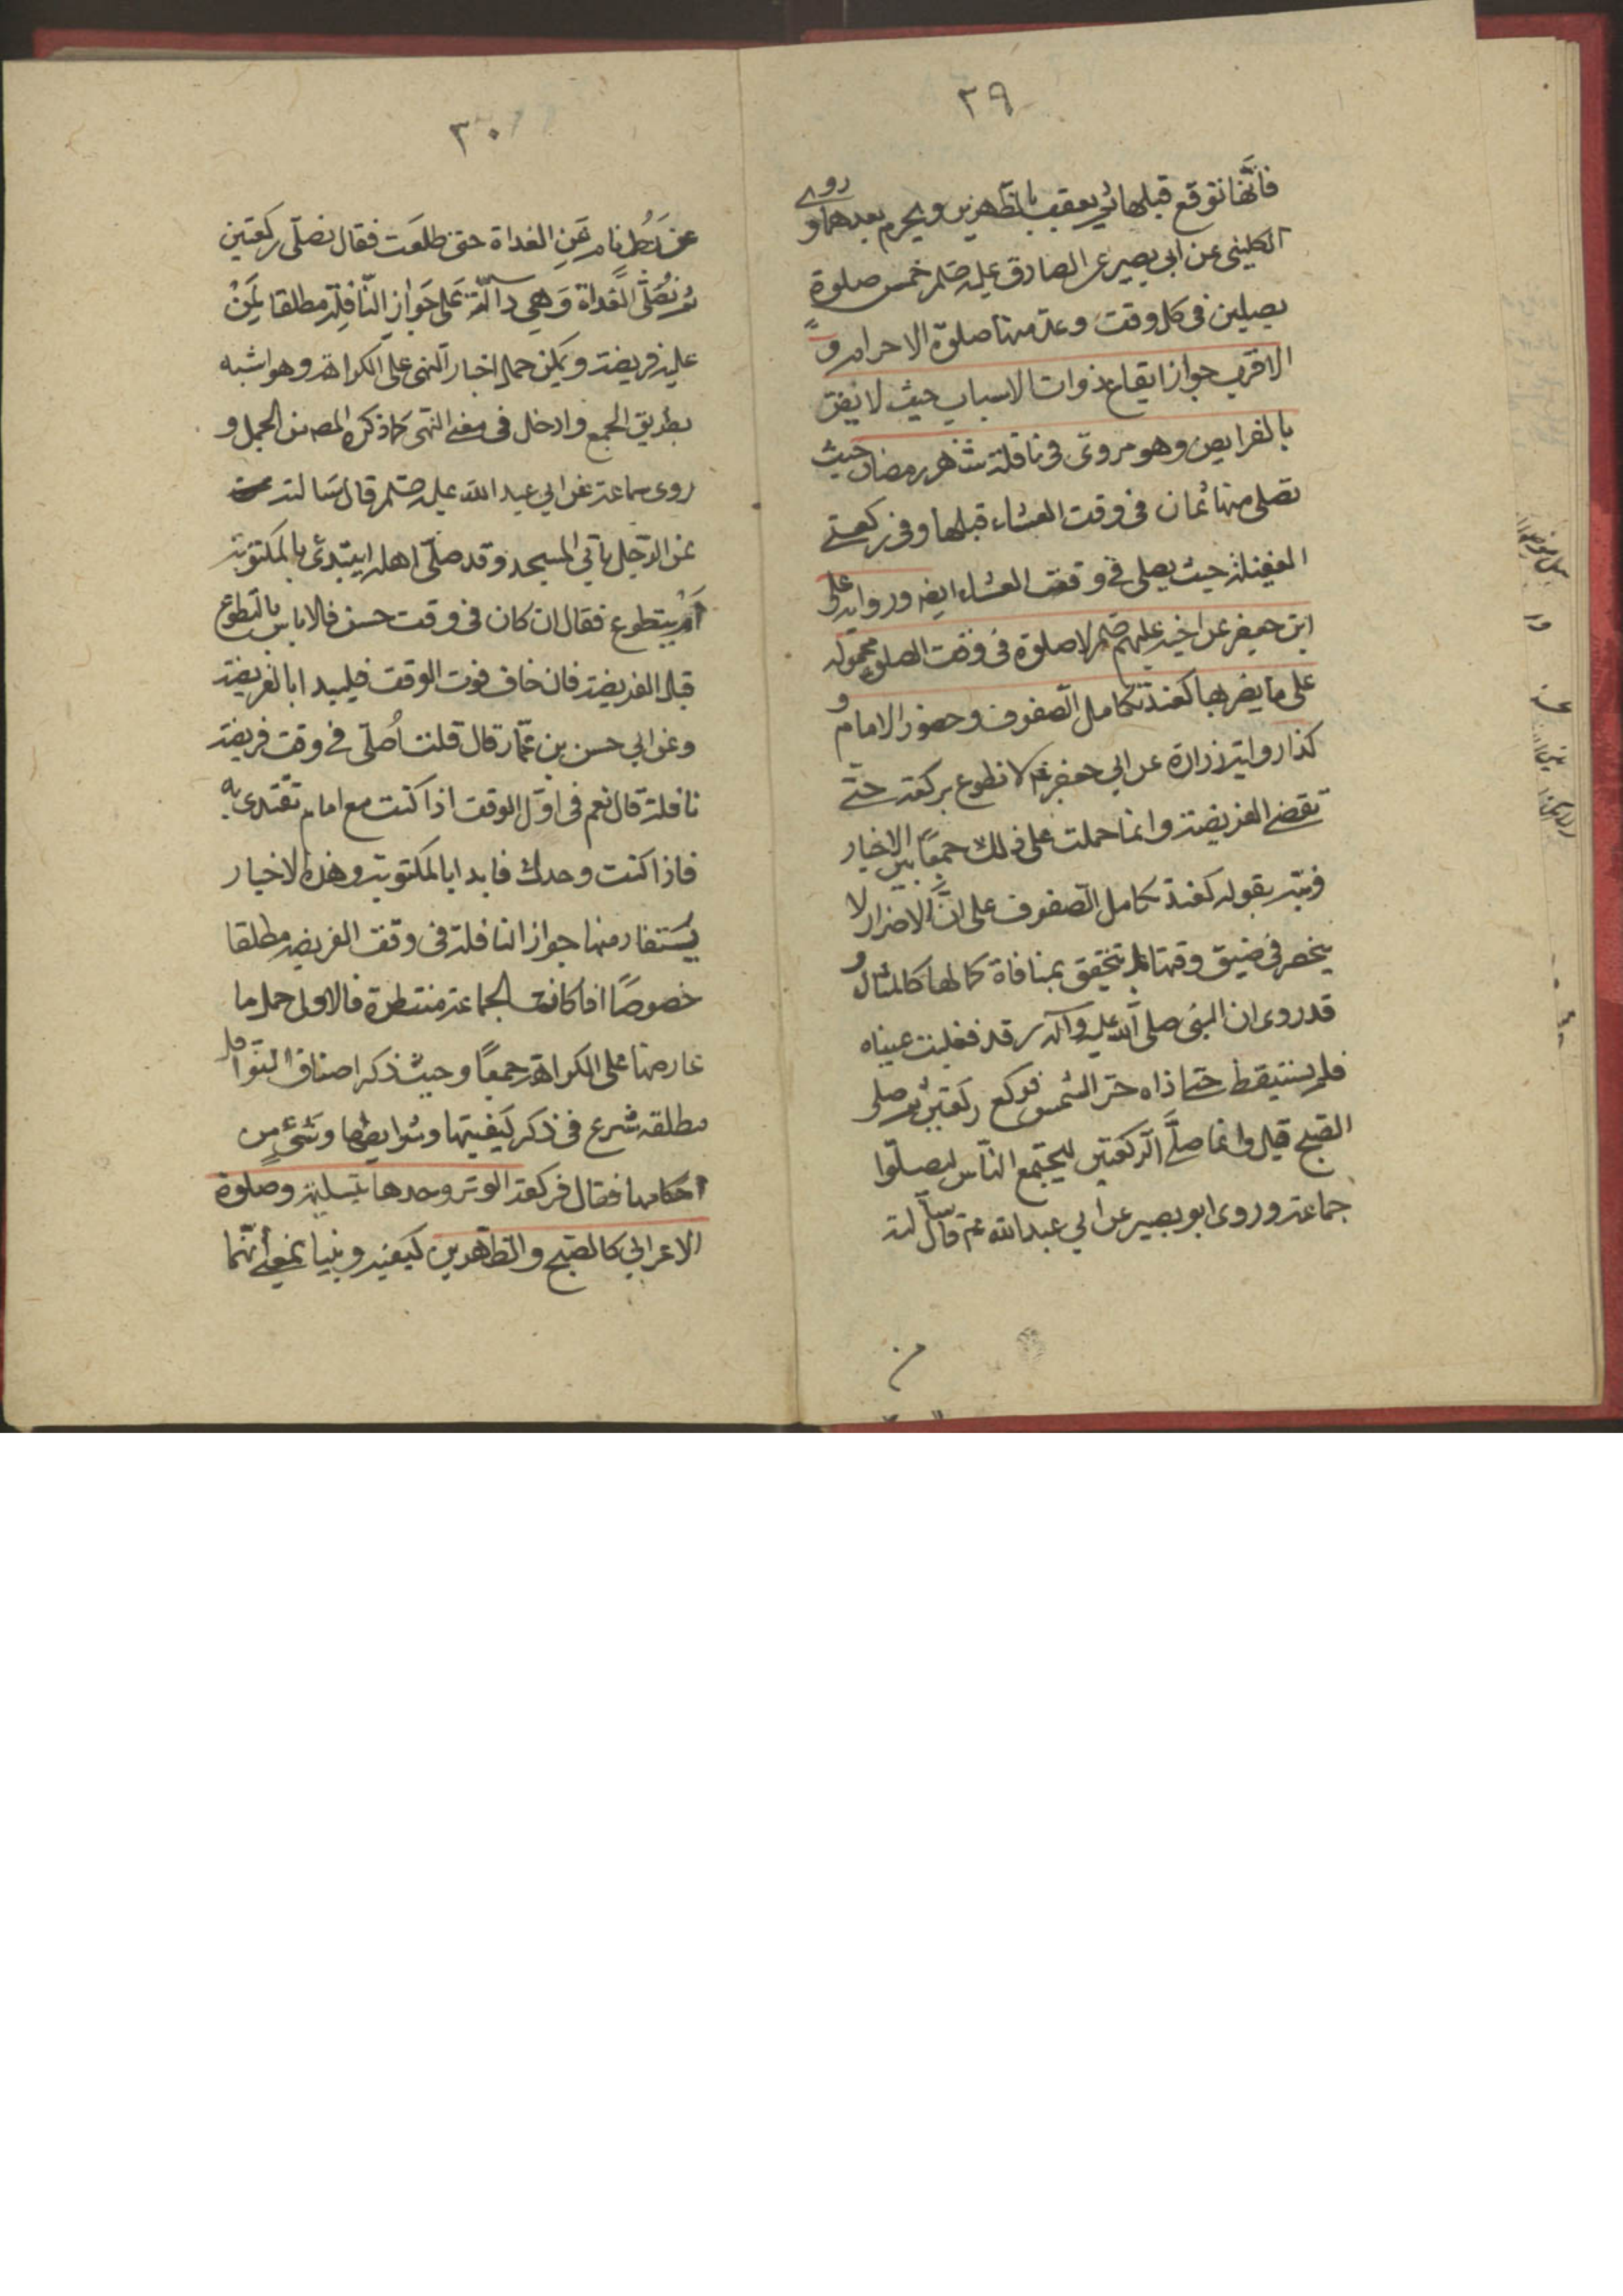 ٢٩
فانها توقع قبلها ثم يعقب بالظهرين ويحرم بعدهما و روى
الكليني عن ابي بصير عن الصادق عليه صلم خمس صلوة
يصلين في كل وقت وعد منها صلوة الاحرام و
الاقرب جواز ايقاع ذوات الاسباب حيث لا يضر
بالفرايض وهو مروى في نافلة شهر رمضان حيث
تصلى منها ثمان في وقت العشاء قبلها وفي ركعتي
الغفيلة حيث يصلى في وقت العشاء ايضه ورواية على
ابن جعفر عن اخيه عليهم صلم لا صلوة في وقت الصلوة محمولة
على ما يضر بها كعند تكامل الصفوف وحضور الامام و
كذا رواية زرارة عن ابي جعفر عم لا تطوع بركعة حتى
تقضى الفريضة وانما حملت على ذلك جمعًا بين الاخبار
ونبه بقوله كعند تكامل الصفوف على انَّ الاضرار لا
ينحصر في ضيق وقتها بل يتحقق بمنافاة كمالها كالمثال و
قد روى ان النبي صلى الله عليه وآله رقد فغلبت عيناه
فلم يستيقظ حتى اذاه حرّ الشمس فركع ركعتين ثم صلى
الصبح قيل وانما صلَّى الركعتين ليجتمع الناس ليصلّوا
جماعة وروى ابو بصير عن ابي عبد الله عم قال سألته
٣٠
عن رجُل نام عَنِ الغداة حتى طلعَت فقال نصلّى ركعتين
ثم نصُلّى الغداة وَهِي دالّة عَلى جَوازِ النّافِلة مطلقا لِمَنْ
عليه فريضة ويمكن حمل اخبار النهى على الكراهة وهو اشبه
بطريق الجمع وادخل في معنى النهى كما ذكره المصنف الجمل و
روى سماعة عن ابي عبد الله عليه صلم قال سَالته
عن الرّجل ياتي المسجد وقد صلّى اهله ايبتدئ بالمكتوبة
اَم يتطوع فقال ان كان في وقت حسن فلا باس بالتطوع
قبل الفريضة فان خاف فوت الوقت فليبدا بالفريضة
وعن ابي حسن بن عمّار قال قلت اُصلّى في وقت فريضة
نافلة قال نعم في اوّل الوقت اذا كنت مع امام تقتدى به
فاذا كنت وحدك فابدا بالمكتوبة وهذه الاخبار
يُستفاد منها جواز النافلة في وقت الفريضه مطلقا
خصوصًا اذا كانت الجماعة منتظرة فالاولى حمل ما
عارضها على الكراهة جمعًا وحيث ذكر اصناف النوافل
مطلقه شرع في ذكر كيفيتها وشرايطها وشئٍ من
احكامها فقال فركعة الوتر وحدها بتسليمة وصلوة
الاعرابي كالصبح والظهرين كيفية وترتيبا بمعنى أنّهما